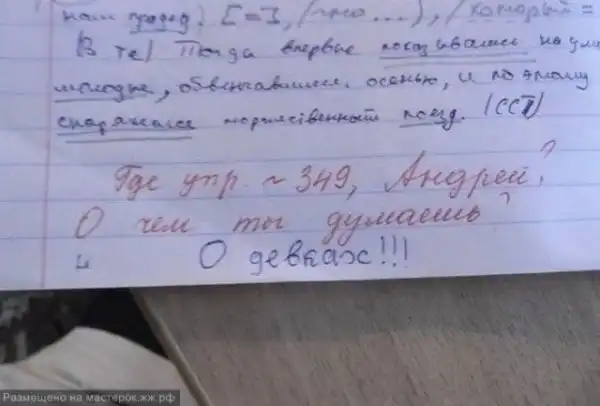 наш прадед. [ = ], (что ...), (который =
(В те) Тогда впервые показывались на ули
молодые, обвенчавшиеся осенью, и поэтому
снаряжался торжественный поезд. (ССП)
Где упр. ~ 349, Андрей?
О чем ты думаешь?
О девках!!!
Размещено на мастерок.жж.рф